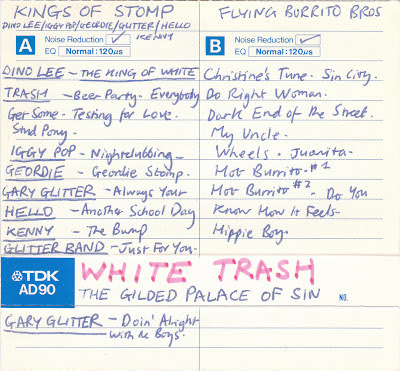 KINGS OF STOMP
DINO LEE/IGGY POP/GEORDIE/GLITTER/HELLO
KENNY
A Noise Reduction
EQ Normal:120µs
DINO LEE - THE KING OF WHITE
TRASH - Beer Party. Everybody
Get Some. Testing for Love.
Stud Pony.
IGGY POP - Nightclubbing -
GEORDIE - Geordie Stomp.
GARY GLITTER - Always Your
HELLO - Another School Day
KENNY - The Bump
GLITTER BAND - Just For You.
FLYING BURRITO BROS
B Noise Reduction
EQ Normal:120µs
Christine's Tune. Sin City.
Do Right Woman.
Dark End of the Street.
My Uncle.
Wheels. Juanita.
Hot Burrito #1
Hot Burrito #2. Do You
Know How It Feels.
Hippie Boy.
TDK
AD90
WHITE TRASH
THE GILDED PALACE OF SIN NO.
GARY GLITTER - Doin' Alright
With the Boys.